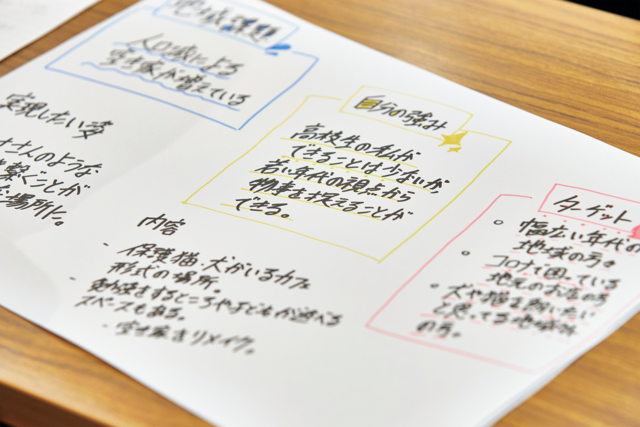 地域課題
人口減による
空き家が増えている
実現したい姿
さんのような
繋ぐことが
場所に。
自らの強み
高校生の私が
できることは少ないが、
若い年代の視点から
物事を捉えることが
できる。
ターゲット
○ 幅広い年代の
地域の方。
○ コロナで困っている
地元のお店の方
○ 犬や猫を飼いたい
と思ってる地域外
の方。
内容
・保護猫・犬がいるカフェ
形式の場所。
・勉強をするところや子どもが遊べる
スペースもある。
・空き家をリメイク。